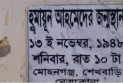 হুমায়ূন আহমেদের জন্মস্থান
১৩ ই নভেম্বর, ১৯৪৮
শনিবার, রাত ১০ টা
মোহনগঞ্জ, শেখবাড়ি